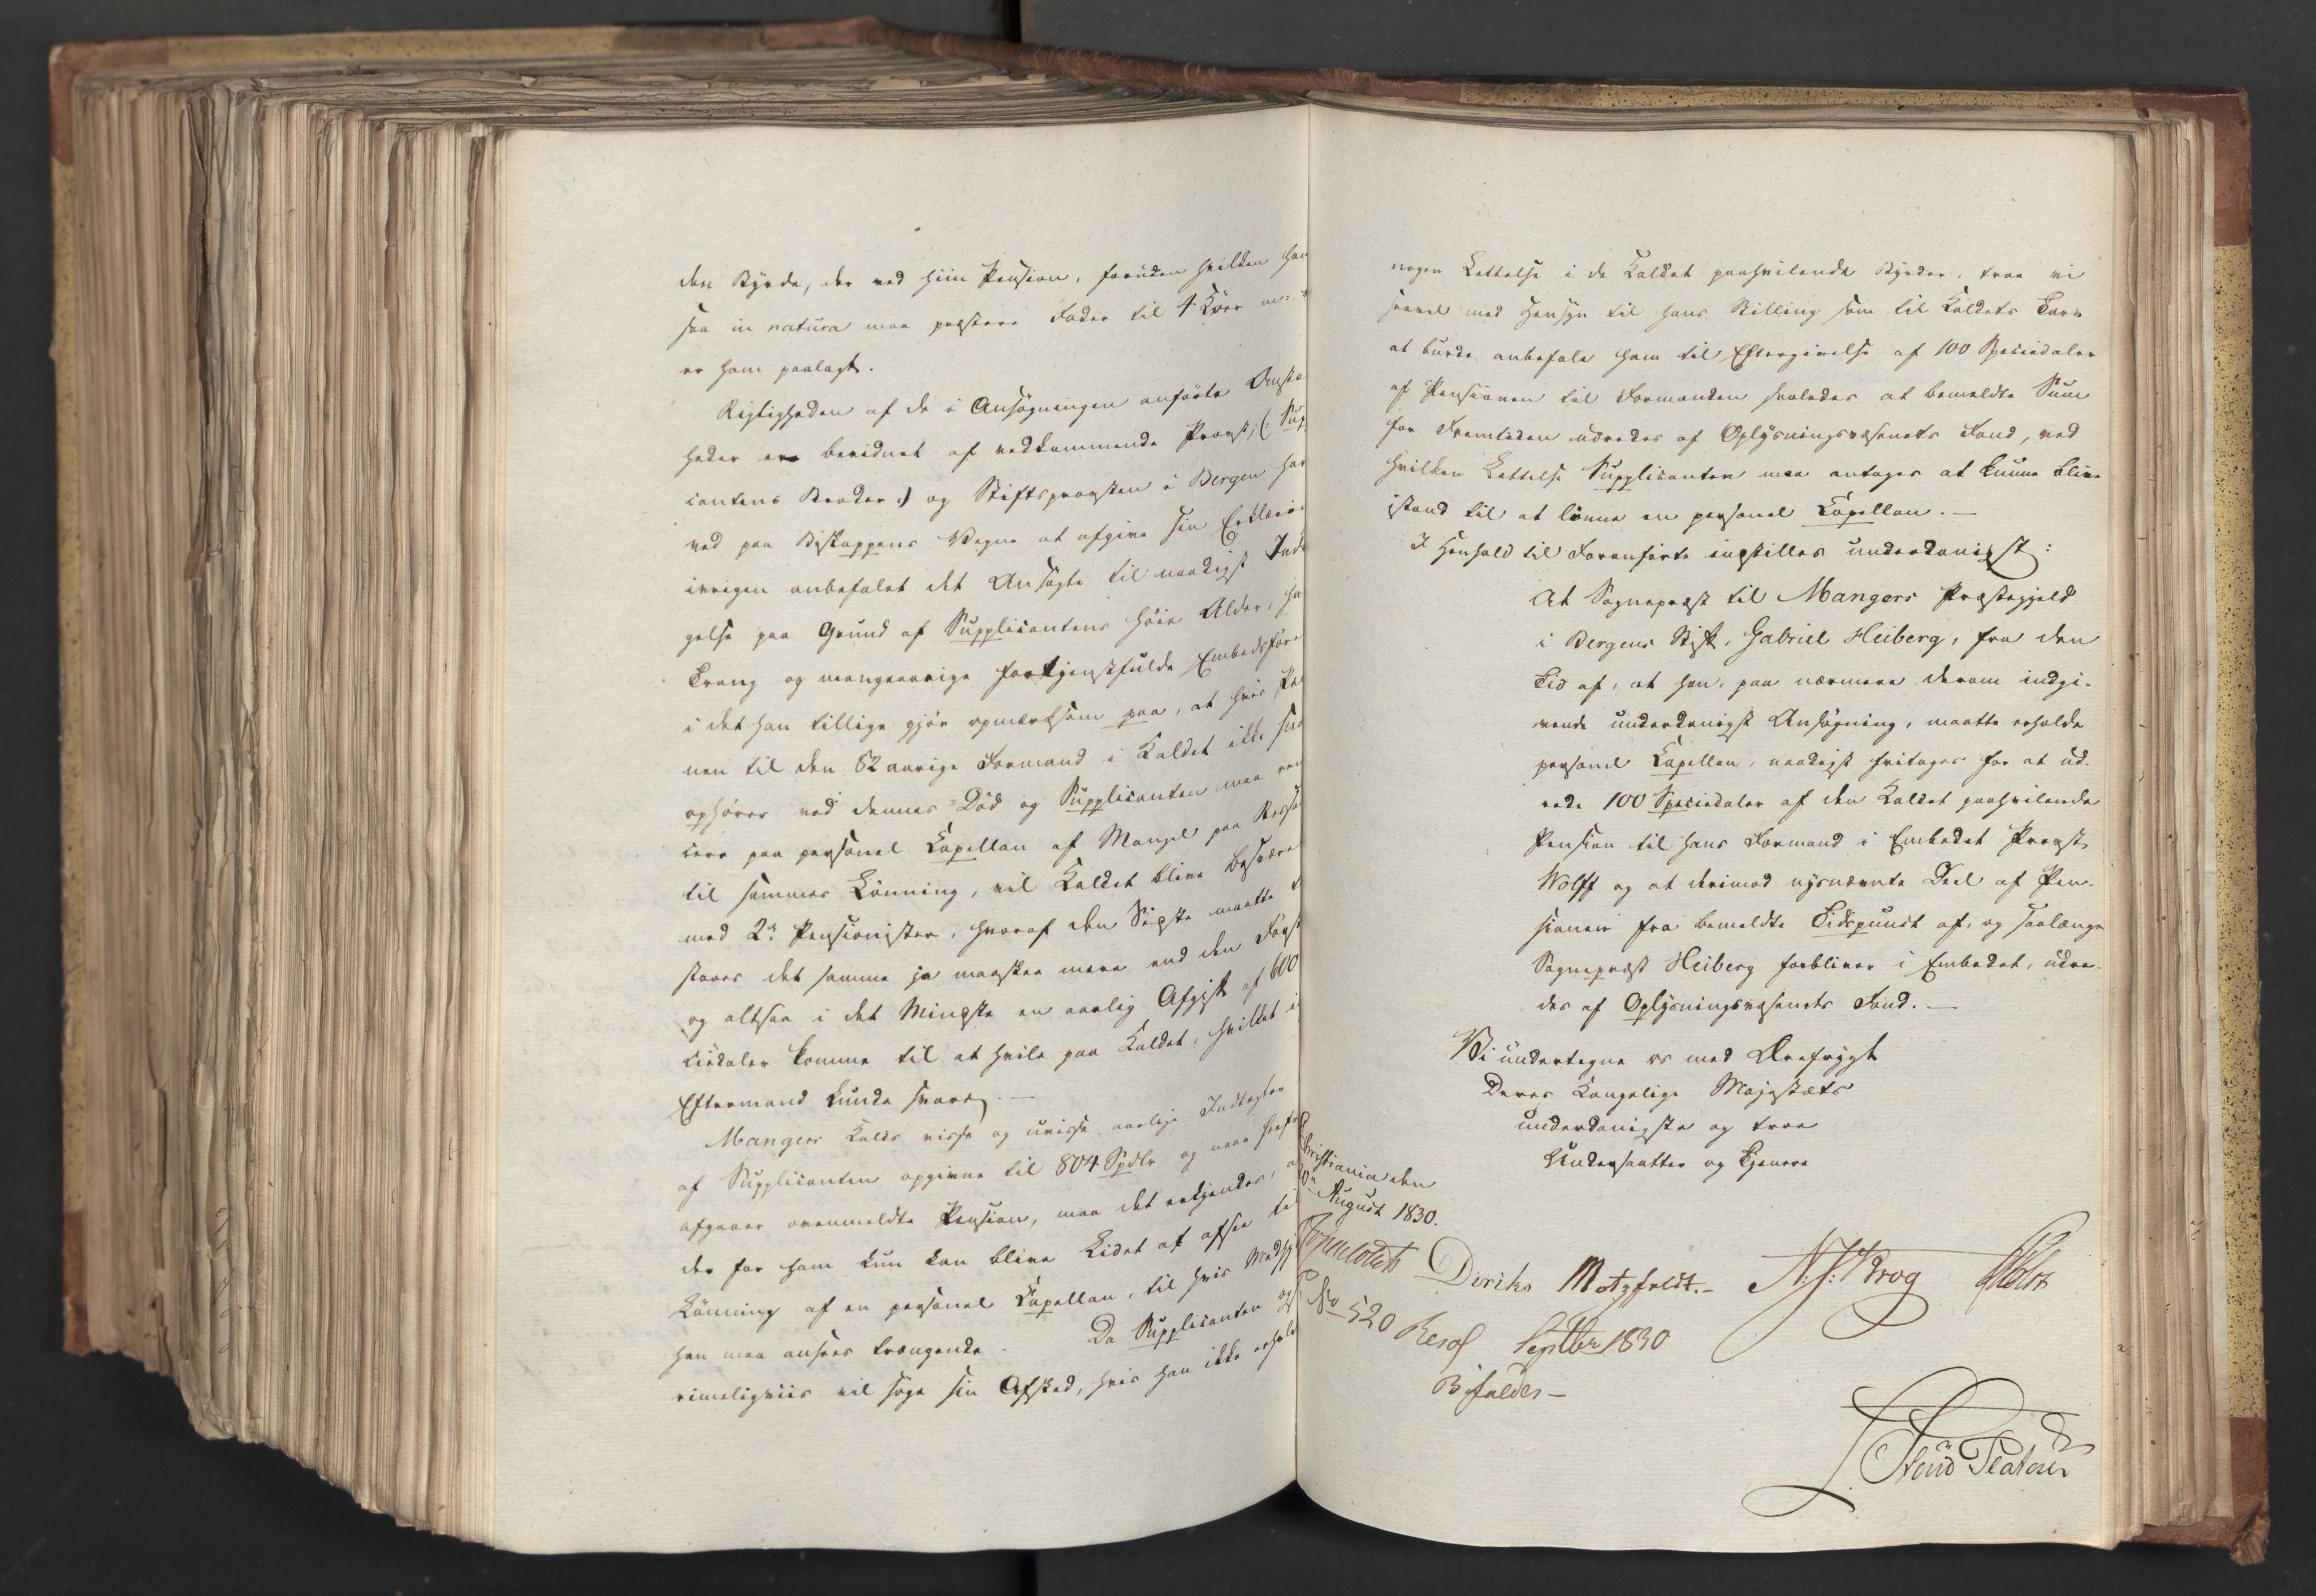 den Byrde, der ved hiin Pension, foruden hvilken han
saa in natura maa præstere Foder til 4 Køer
er ham paalagt.
Rigtigheden af de i Ansøgningen anførte Omstæ
heder ere bevidnet af vedkommende Provst, (: Sup
cantens Broder :) og Stiftsprovsten i Bergen har
ved paa Biskoppens Vegne at afgive sin Erklæri
ivrigen anbefalet det Ansøgte til naadigst Ind
gelse paa Grund af Supplicantens høie Alder,
Trang og mangeaarige fortjenstfulde Embedsføre
i det han tillige gjør opmærksom paa, at hvis Pe
nen til den 82 aarige Formand i Kaldet ikke
ophører ved dennes Død og Supplicanten maa
cere paa personel Capellan af Mangel paa Resso
til sammes Lønning, vil Kaldet blive besværet
med 2de Pensionister, hvoraf den Sidste maatte
svares det samme ja maaskee mere end den Første
og altsaa i det Mindste en aarlig Afgift af 600
ciedaler komme til at hvile paa Kaldet, hvilket i
Eftermand kunde svare. —
Mangers Kalds visse og uvisse aarlige Indtægter
af Supplicanten opgivne til 804 Spdlr og naar herfra
afgaaer ovenmeldte Pension, maa det erkjendes, a
der for ham kun kan blive Lidet at afsee til
Lønning af en personel Capellan, til hvis Medhj
han maa ansees trængende. Da Supplicanten og
rimeligviis vil søge sin Afsked, hvis han ikke erhold
nogen Lettelse i de Kaldet paahvilende Byrder, troe vi
saavel med Hensyn til hans Stilling som til Kaldets Tarv
at burde anbefale ham til Eftergivelse af 100 Speciedaler
af Pensionen til Formanden saaledes at bemeldte Sum
for Fremtiden udredes af Oplysningsvæsenets Fond, ved
hvilken Lettelse Supplicanten maa antages at kunne blive
istand til at lønne en personel Capellan. —
I Henhold til Foranførte indstilles underdanigst:
At Sognepræst til Mangers Præstegjeld
i Bergens Stift, Gabriel Heiberg, fra den
Tid af, at han, paa nærmere derom indgi-
vende underdanigst Ansøgning, maatte erholde
personel Capellan, naadigst fritages for at ud-
rede 100 Speciedaler af den Kaldet paahvilende
Pension til hans Formand i Embedet Provst
Wolff og at derimod nysnævnte Deel af Pen-
sionen fra bemeldte Tidspunct af, og saalænge
Sognepræst Heiberg forbliver i Embedet, udre-
des af Oplysningsvæsenets Fond. —
Vi undertegne os med Ærefrygt
Deres Kongelige Majestæts
underdanigste og troe
Undersaatter og Tjenere
Christiania den
August 1830.
Diriks Motzfeldt. — Krog Holst
No 520 Resol Septbr 1830
Bifaldes —